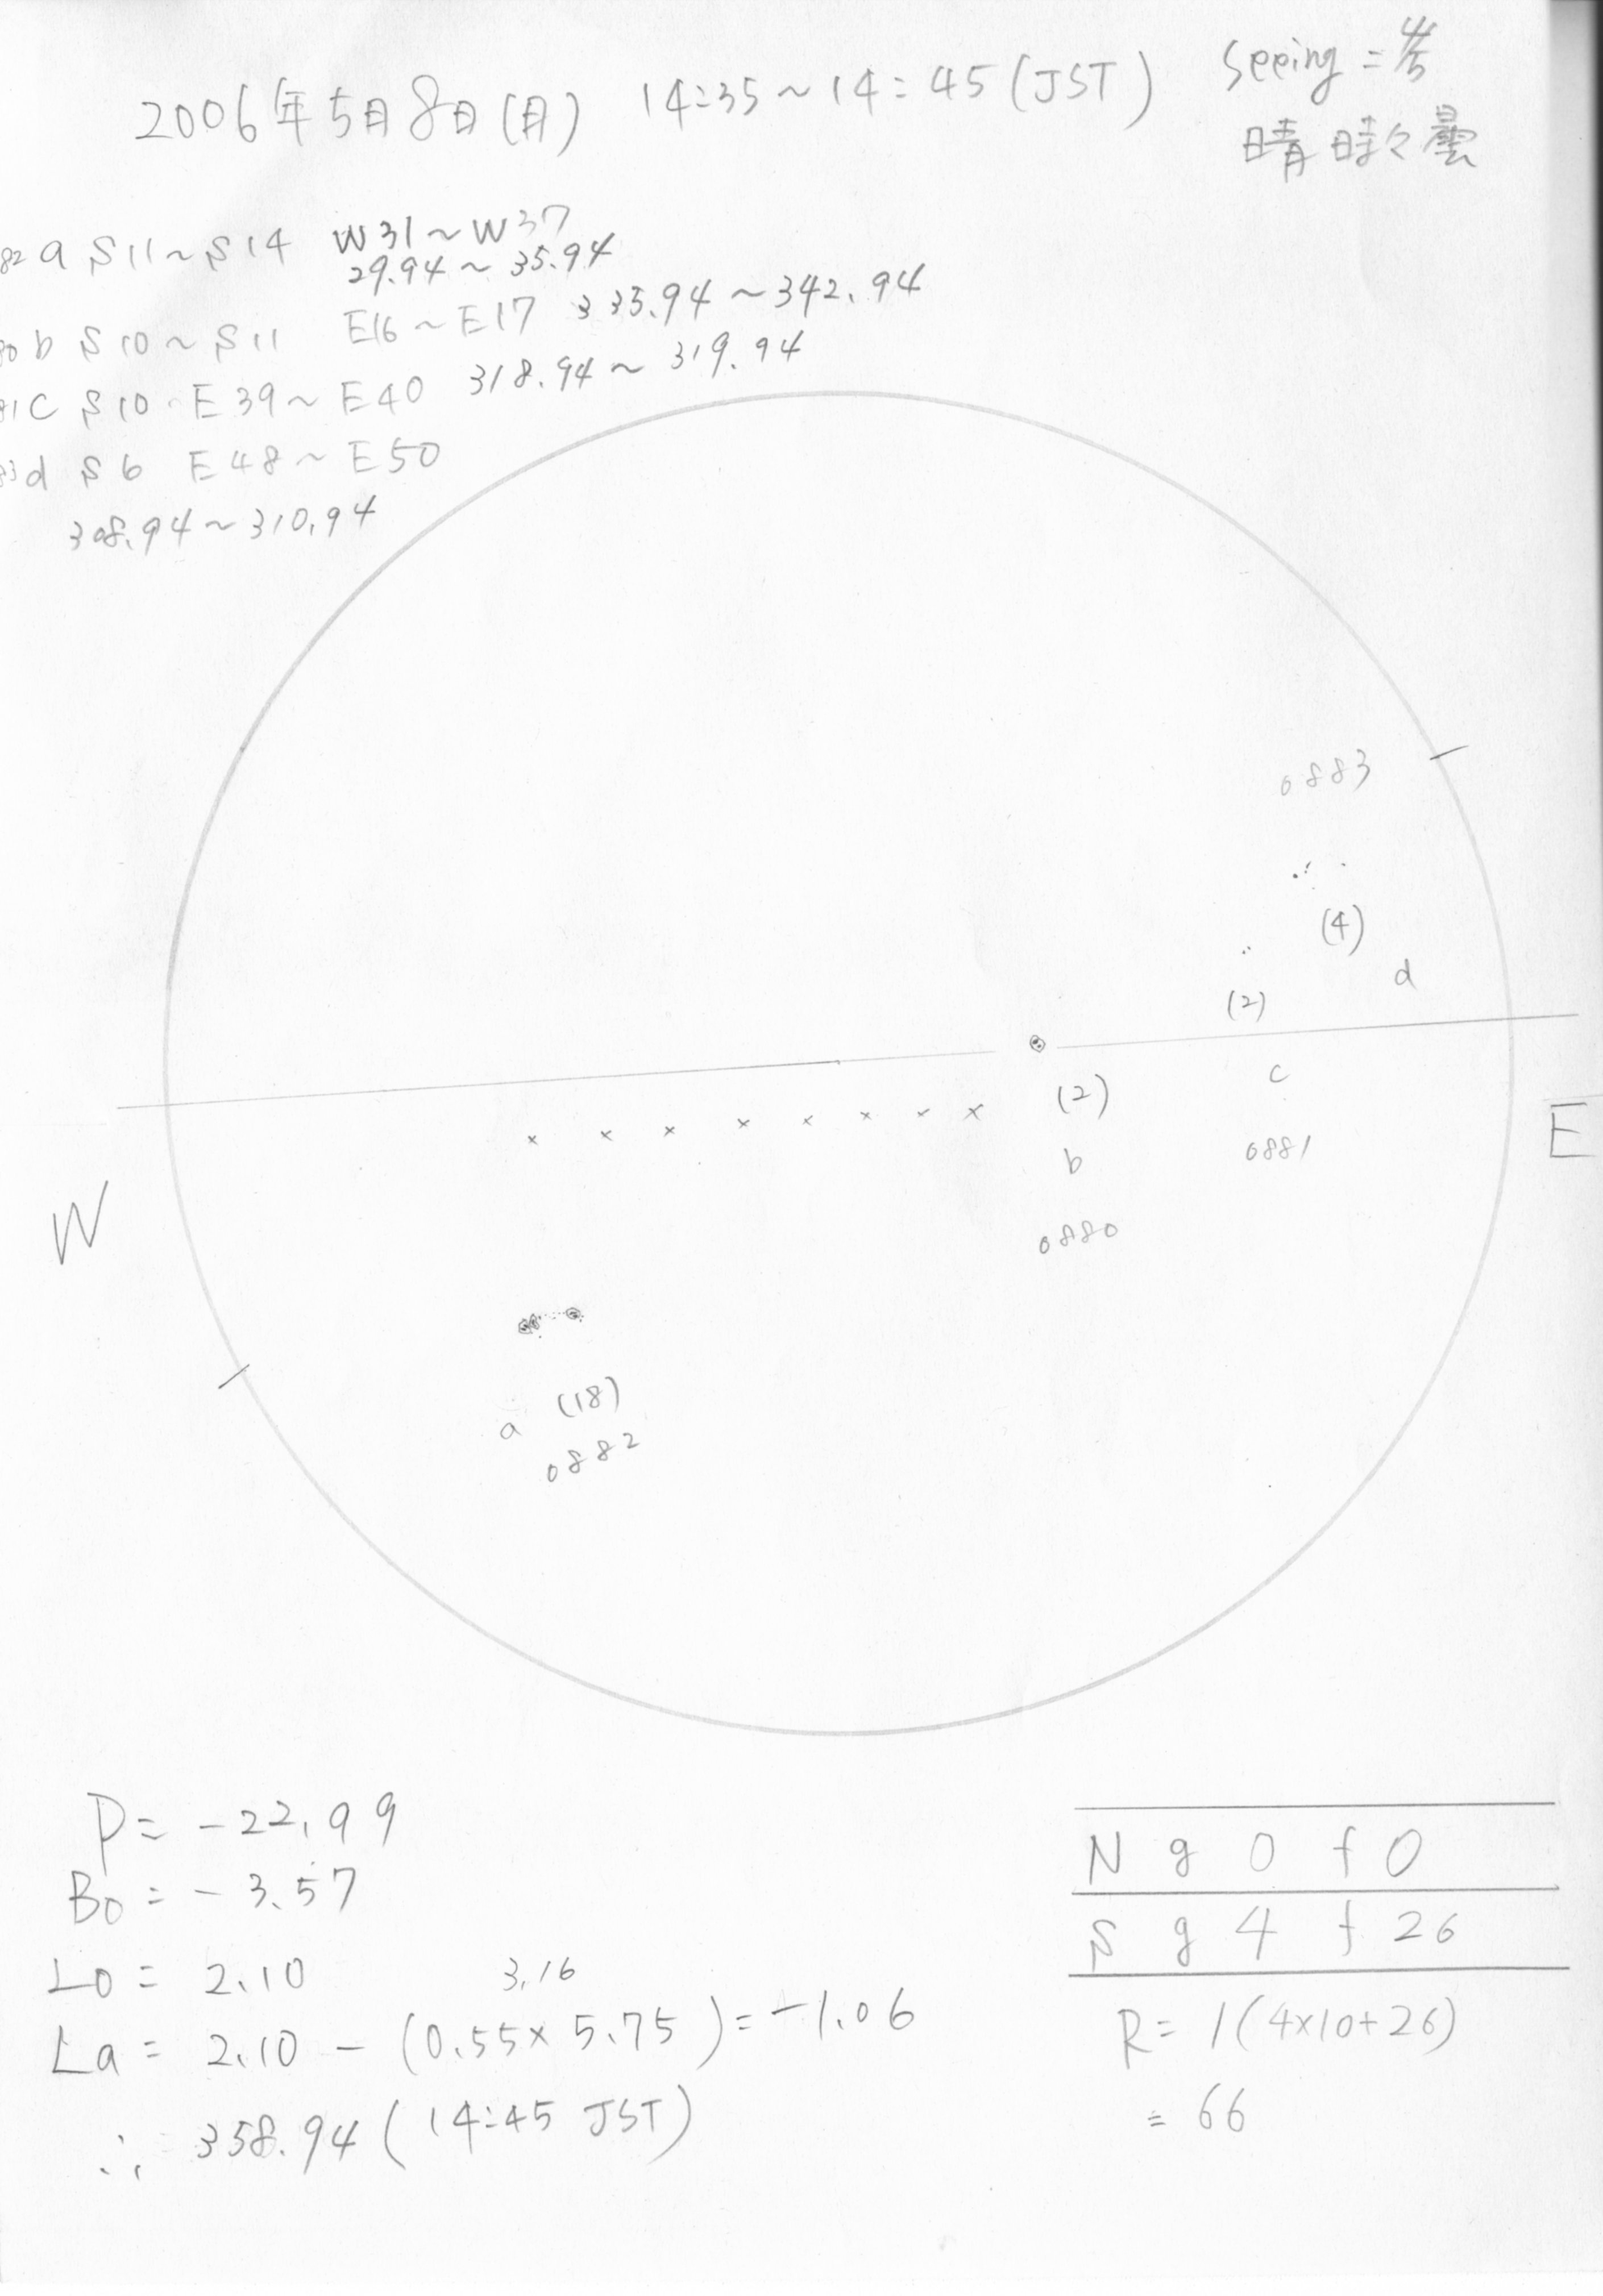 2006年5月8日(月) 14:35～14:45(JST) Seeing =
晴時々曇
82 a S11～S14 W31～W37
29.94～35.94
80 b S10～S11 E16～E17 335.94～342.94
81 c S10 E39～E40 318.94～319.94
83 d S6 E48～E50
308.94～310.94
0883
(4)
d
(2)
c
(2)
0881
b
E
W
0880
a (18)
0882
P= -22.99
B0 = -3.57
L0 = 2.10
3.16
La = 2.10 - (0.55× 5.75) = -1.06
∴ 358.94 (14:45 JST)
N g 0 f 0
S g 4 f 26
R= 1(4×10+26)
= 66